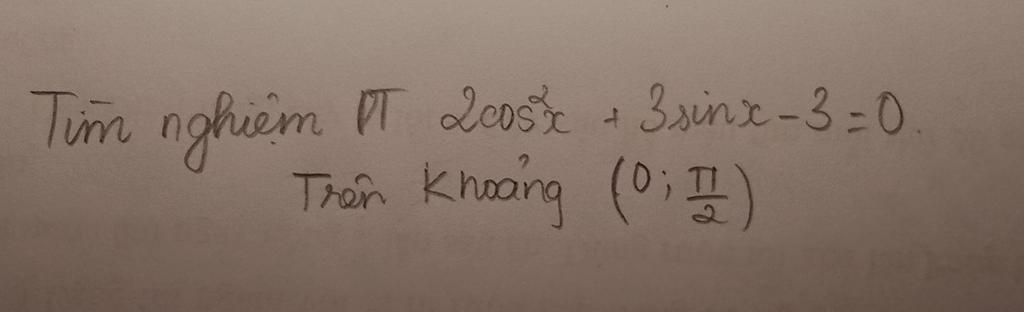 Tìm nghiệm PT 2cos²x + 3sinx - 3 = 0.
Trên Khoảng (0; π/2)